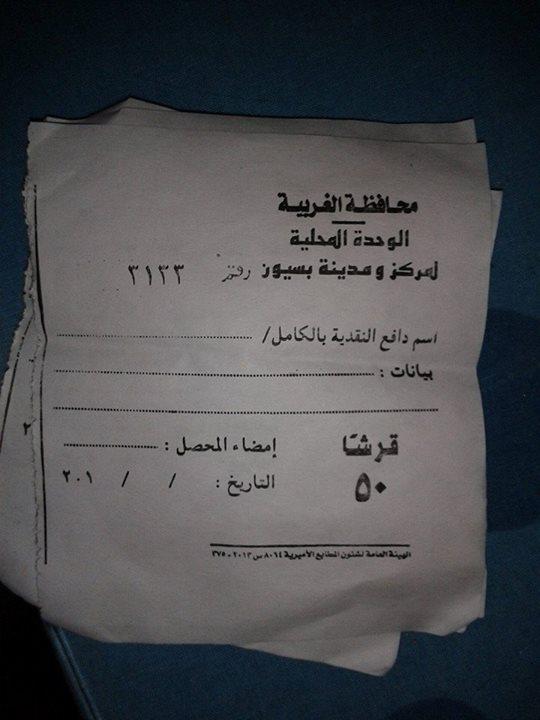 محافظة الغربية
الوحدة المحلية
لمركز ومدينة بسيون رقم ٣١٣٣
اسم دافع النقدية بالكامل/ ..............................
بيانات : ..............................
..............................
قرشًا
٥٠
إمضاء المحصل : ....................
التاريخ : / / ٢٠١
الهيئة العامة لشئون المطابع الأميرية ٨٠٦٤ س ٢٠١٣ - ٣٧٥